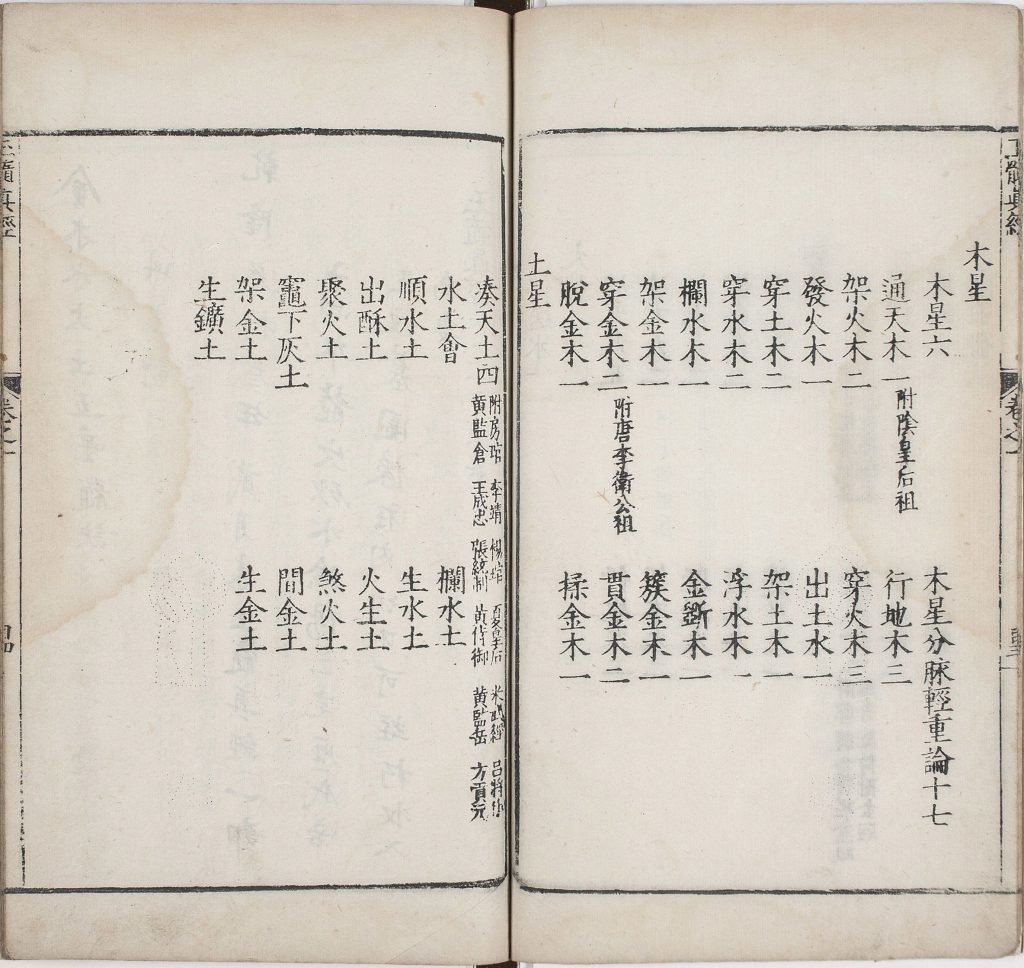 玉髓真經
卷之一
木星
木星六　木星分脉輕重論十七
通天木一 附陰皇后祖　行地木三
架火木二　穿火木三
發火木一　出土水一
穿土木二　架土木一
穿水木二　浮水木一
欄水木一　金斷木一
架金木一　簇金木一
穿金木二 附唐李衛公祖　貫金木二
脫金木一　揉金木一
土星
湊天土四 附房琯 黄監倉 李靖 王成忠 楊琯 張統制 夏皇后 黄侍御 米武經 黄監岳 吕將 方貢元
水土會　欄水土
順水土　生水土
出酥土　火生土
聚火土　煞火土
竈下灰土　間金土
架金土　生金土
生鑛土
玉髓真經
卷之一
四